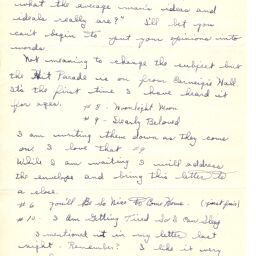 what the average man's ideas and
ideals really are?" I'll bet you
can't begin to put your opinions into
words.
Not meaning to change the subject but
the Hit Parade is on from Carnegie Hall
It's the first time I have heard it
for ages.
#8 - Moonlight Moon
#9 - Dearly Beloved
I am writing them down as they come
on. I love that #9
While I am waiting I will address
the envelope and bring this letter to
a close.
#6 You'll Be So Nice To Come Home.
#10 - I Am Getting Tired So I Can Sleep
I mentioned it in my letter last
night. Remember? I like it very